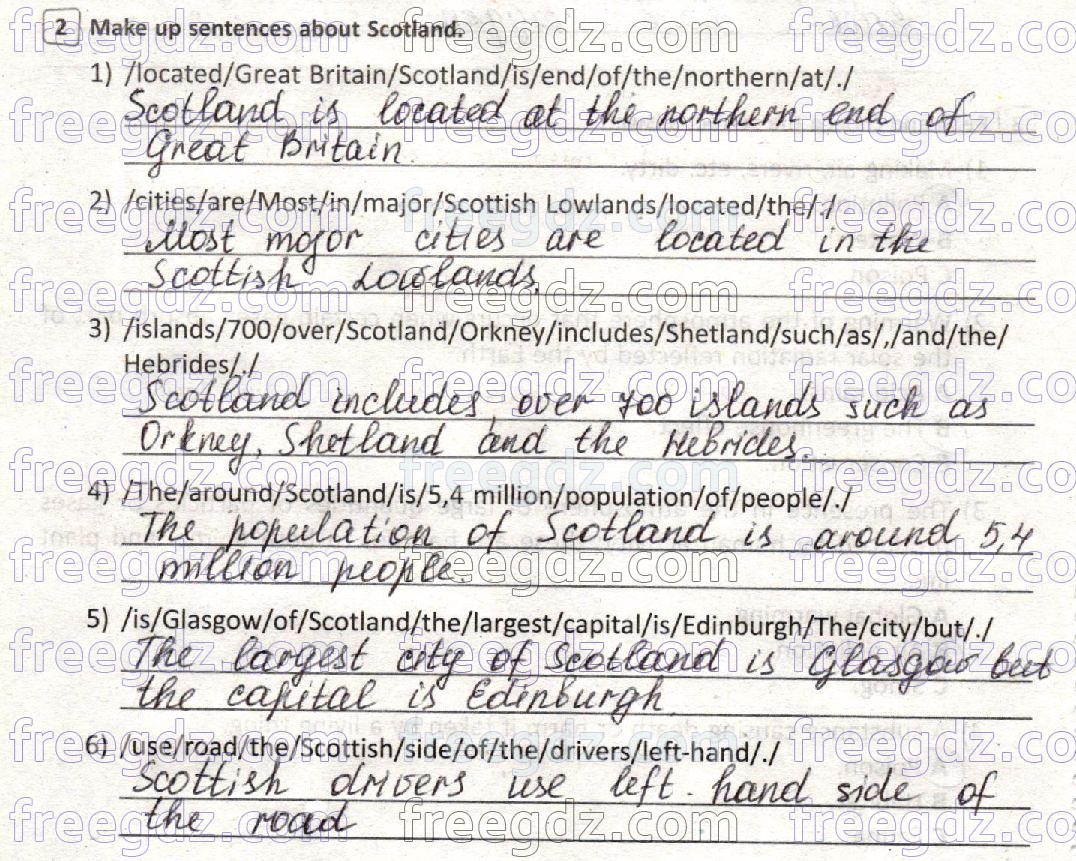 2 Make up sentences about Scotland.
1) /located/Great Britain/Scotland/is/end/of/the/northern/at/./
Scotland is located at the northern end of
Great Britain.
2) /cities/are/Most/in/major/Scottish Lowlands/located/the/./
Most major cities are located in the
Scottish Lowlands.
3) /islands/700/over/Scotland/Orkney/includes/Shetland/such/as/,/and/the/
Hebrides/./
Scotland includes over 700 islands such as
Orkney, Shetland and the Hebrides.
4) /The/around/Scotland/is/5,4 million/population/of/people/./
The population of Scotland is around 5,4
million people.
5) /is/Glasgow/of/Scotland/the/largest/capital/is/Edinburgh/The/city/but/./
The largest city of Scotland is Glasgow but
the capital is Edinburgh.
6) /use/road/the/Scottish/side/of/the/drivers/left-hand/./
Scottish drivers use left-hand side of
the road
freegdz.com